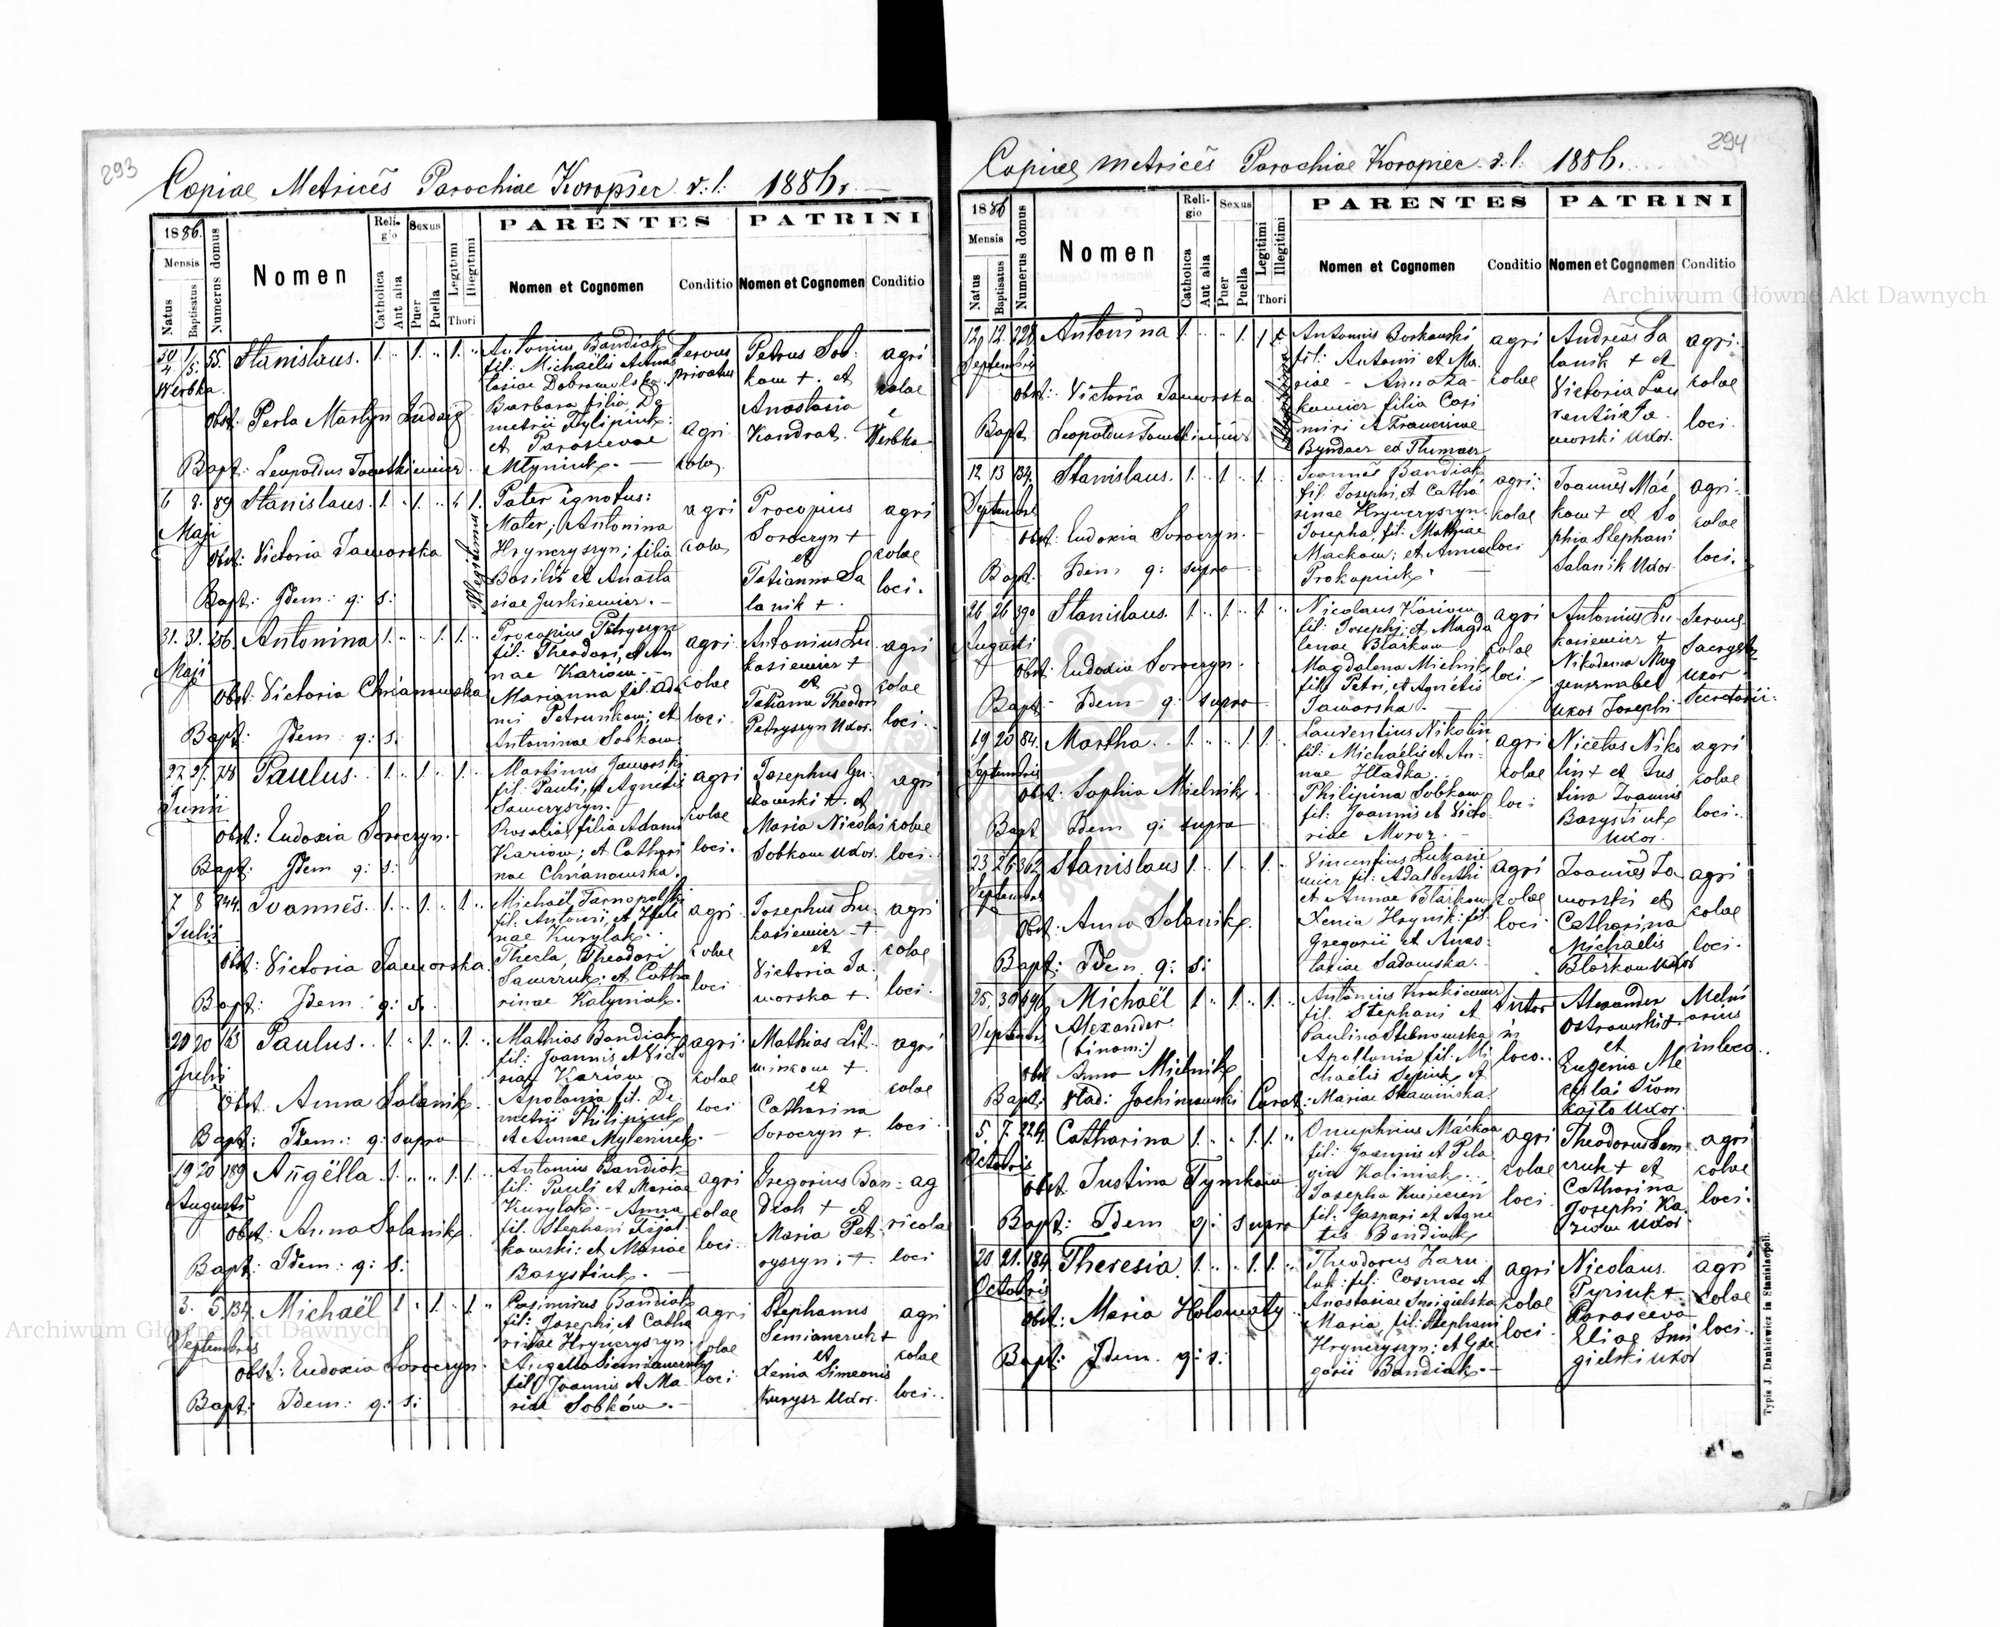 293
Copiae Metricës Parochiae Koropiec r: l: 1886.
1886.
Mensis
Natus
Baptisatus
Numerus domus
Nomen
Religio
Catholica
Aut alia
Sexus
Puer
Puella
Legitimi
Illegitimi
Thori
PARENTES
Nomen et Cognomen
Conditio
PATRINI
Nomen et Cognomen
Conditio
55. Stanislaus. 1. 1. 1.
Antonius Bandiak
fil: Michaëlis et Anas
tasiae Dobrowolska.
Barbara filia De
metrii Fylipiuk:
et Parascevae
Mlyniuk. —
servus
privatus
agri
colae
Petrus Sob-
kow +. et
Anastasia
Kandrat.
agri
colae
Werbka
Werbka
Obst: Perla Martyn
Bapt: Leopoldus
6 8. 89 Stanislaus. 1. 1. 1.
Maji
Obst: Victoria Jaworska
Bapt: Idem: q: s:
Illegitimus
Pater ignotus:
Mater; Antonina
Hryncryszyn; filia
Basilii et Anasta
siae Jurkiewicz. —
agri
colae
Procopius
Soroczyn +
et
Tatianna Sa
lanik +.
agri
colae
loci.
31. 31. 256. Antonina 1. 1. 1.
Maji
Obst: Victoria Chrianowska
Bapt: Idem: q: s:
Procopius Petryszyn
fil: Theodori, et An
nae Kariow.
Marianna fil: Ada
mi Petrunkow; et
Antoninae Sobkow.
agri
colae
loci.
Antonius Lu
kasiewicz +
et
Tatiana Theodori
Petryszyn Uxor.
agri
colae
loci.
27. 27. 78 Paulus. 1. 1. 1.
Junii
Obst: Eudoxia Soroczyn.
Bapt: Idem q: s:
Martinus Jaworski
fil: Pauli, et Agnetis
Sawczyszyn. —
Rosalia, filia Adami
Kariow; et Cathari
nae Chrianowska.
agri
colae
loci.
Josephus
et
Maria Nicolai
Sobkow Uxor.
agri
colae
loci.
7 8 244. Ioannës. 1. 1. 1.
Julii
Obst: Victoria Jaworska.
Bapt: Idem: q: s.
Michaël Tarnopolski
fil: Antonii, et Hele
nae Kurylak.
Thecla, Theodori
Sawczuk; et Catha
rinae Kalyniak.
agri
colae
loci
Josephus Lu-
kasiewicz +
et
Victoria Ja-
worska +.
agri
colae
loci.
20 20 163 Paulus. 1. 1. 1.
Julii
Obst: Anna Salanik.
Bapt: Idem: q: supra
Mathias Bandiak
fil: Joannis et Victo
riae Kariow
Apolonia fil: De
metrii Philipiuk
et Annae Myleniuk. —
agri
colae
loci
Mathias Lit-
winkow +
et
Catharina
Soroczyn +.
agri
colae
loci.
19 20 189 Angëlla 1. 1. 1.
Augusti
Obst: Anna Salanik.
Bapt: Idem: q: s:
Antonius Bandiak
fil: Pauli et Mariae
Kurylak. — Anna
fil: Stephani
kowski: et Mariae
Bazystiuk. —
agri
colae
loci.
Gregorius Ban-
diak + et
Maria Pet
ryszyn; +.
ag
ricolae
loci
3. 5. 134. Michaël 1 1. 1.
Septembris
Obst: Eudoxia Soroczyn.
Bapt: Idem: q: s:
Casimirus Bandiak
fil: Josephi et Catha
rinae Hrynczyszyn.
Angella Siemianczuk
fil: Joannis et Ma-
riae Sobkow. —
agri
colae
loci
Stephanus
Semianczuk +
et
Xenia Simeonis
Kurysz Uxor.
agri
colae
loci.
294
Copiae Metricës Parochiae Koropiec r: l: 1886.
1886
Mensis
Natus
Baptisatus
Numerus domus
Nomen
Religio
Catholica
Aut alia
Sexus
Puer
Puella
Legitimi
Illegitimi
Thori
PARENTES
Nomen et Cognomen
Conditio
PATRINI
Nomen et Cognomen
Conditio
12, 12. 228. Antonina 1. 1
Septembris
Obst: Victoria Jaworska
Bapt. Leopoldus
Antonius Borkowski
fil: Antonii et Ma
riae - Anna Za-
kowicz filia Casi
miri et Franciscae
Byndacz ex Tlumacz
agri
colae
Andreas Sa
lanik + et
Victoria Lau
rentii Ja
worski Uxor.
agri.
colae
loci.
12 13 134. Stanislaus. 1. 1 1.
Septembr
Obst: Eudoxia Soroczyn. —
Bapt: Idem q: supra
Joannës Bandiak
fil: Josephi, et Catha
rinae Hrynczyszyn.
Josepha, fil: Mathiae
Mackow; et Annae
Prokopiuk.
agri.
colae
loci
Joannës Mac
kow + et So
phia Stephani
Salanik Uxor.
agri.
colae
loci.
26 26 390 Stanislaus. 1. 1. 1.
Augusti
Obst: Eudoxia Soroczyn.
Bapt: Idem q: supra
Nicolaus Kariow
fil: Josephi, et Magda
lenae Blazkow
Magdalena Mielnik
fil: Petri, et Agnetis
Jaworska.
agri
colae
loci.
Antonius Lu-
kasiewicz +
Nikodema
Uxor Josephi
Servus
uxor
Secretarii.
19 20 84. Martha. 1. 1. 1.
Septembris
Obst: Sophia Mielnik
Bapt: Idem q: supra
Laurentius Nikolin
fil: Michaelis et An-
nae Hladka.
Philipina Sobkow
fil: Joannis et Victo-
riae Moroz. —
agri
colae
loci
Nicetas Niko
lin + et Jus
tina Joannis
Bazystiuk
Uxor.
agri
colae
loci.
23. 26 362 Stanislaus 1. 1. 1.
Septembris
Obst: Anna Salanik.
Bapt: Idem q: s:
Vincentius Lukasie
wicz fil: Adalberti
et Annae Blazkow
Xenia Hrynik: fil:
Gregorii et Anas-
tasiae Sadowska.
agri
colae
loci
Joannës Ja
worski et
Catharina
Michaëlis
Blazkow Uxor
agri
colae
loci.
25. 30 Michaël 1. 1. 1.
Septembr Alexander
(binom:)
Obst Anna Mielnik
Bapt: Vlad: Jachimowski
Antonius Krukiewicz
fil. Stephani et
Paulina
Apollonia fil: Mi
chaëlis et
Mariae Skawinska.
Sutor
in
loco..
Alexander
Ostrowski +
et
Eugenia
Uxor.
in loco..
5. 7. 224. Catharina 1. 1. 1.
Octobris
Obst: Justina Tymkow
Bapt: Idem q: supra
Onuphrius Mackow
fil: Joannis et Pela
gia Kaliniak.
Josepha
fil: Gaspari et Agne
tis Bandiak
agri
colae
loci.
Theodorus Sem
czuk + et
Catharina
Josephi Ka
riow Uxor
agri
colae
loci.
20. 21. 184. Theresia. 1. 1. 1.
Octobris
Obst: Maria Holowaty
Bapt: Idem. q: s:
Theodorus
fil: Cosmae et
Anastasiae Smigielska
Maria fil: Stephani
Hrynczyszyn: et Gre
gorii Bandiak. —
agri
colae
loci.
Nicolaus.
Pyriuk +.
Parasceva
Eliae Smi
gielski Uxor
agri
colae
loci.
Typis J. Dankiewicz in Stanislaopoli.
Archiwum Główne Akt Dawnych
Archiwum Główne Akt Dawnych